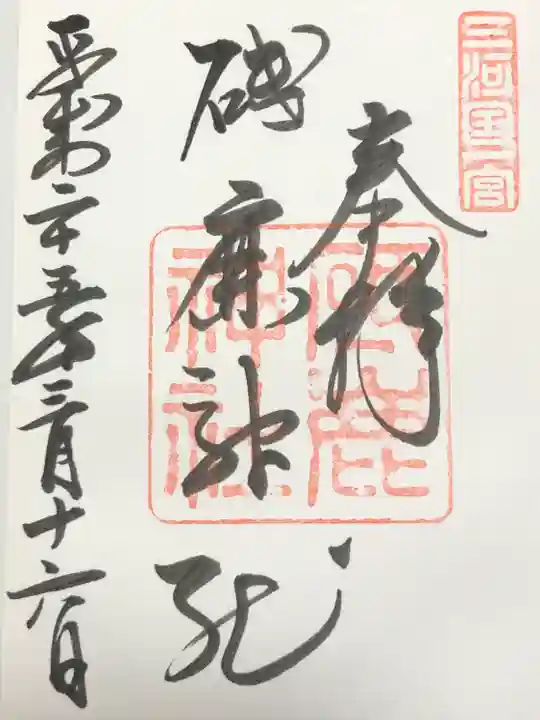 三河國一宮
奉拝
砥鹿神社
平成二十五年三月十六日
砥鹿神社